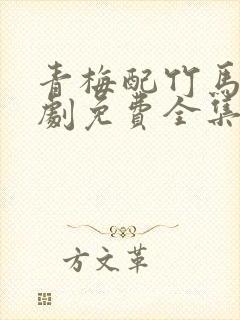 青梅配竹馬
劇免費全集
方文革